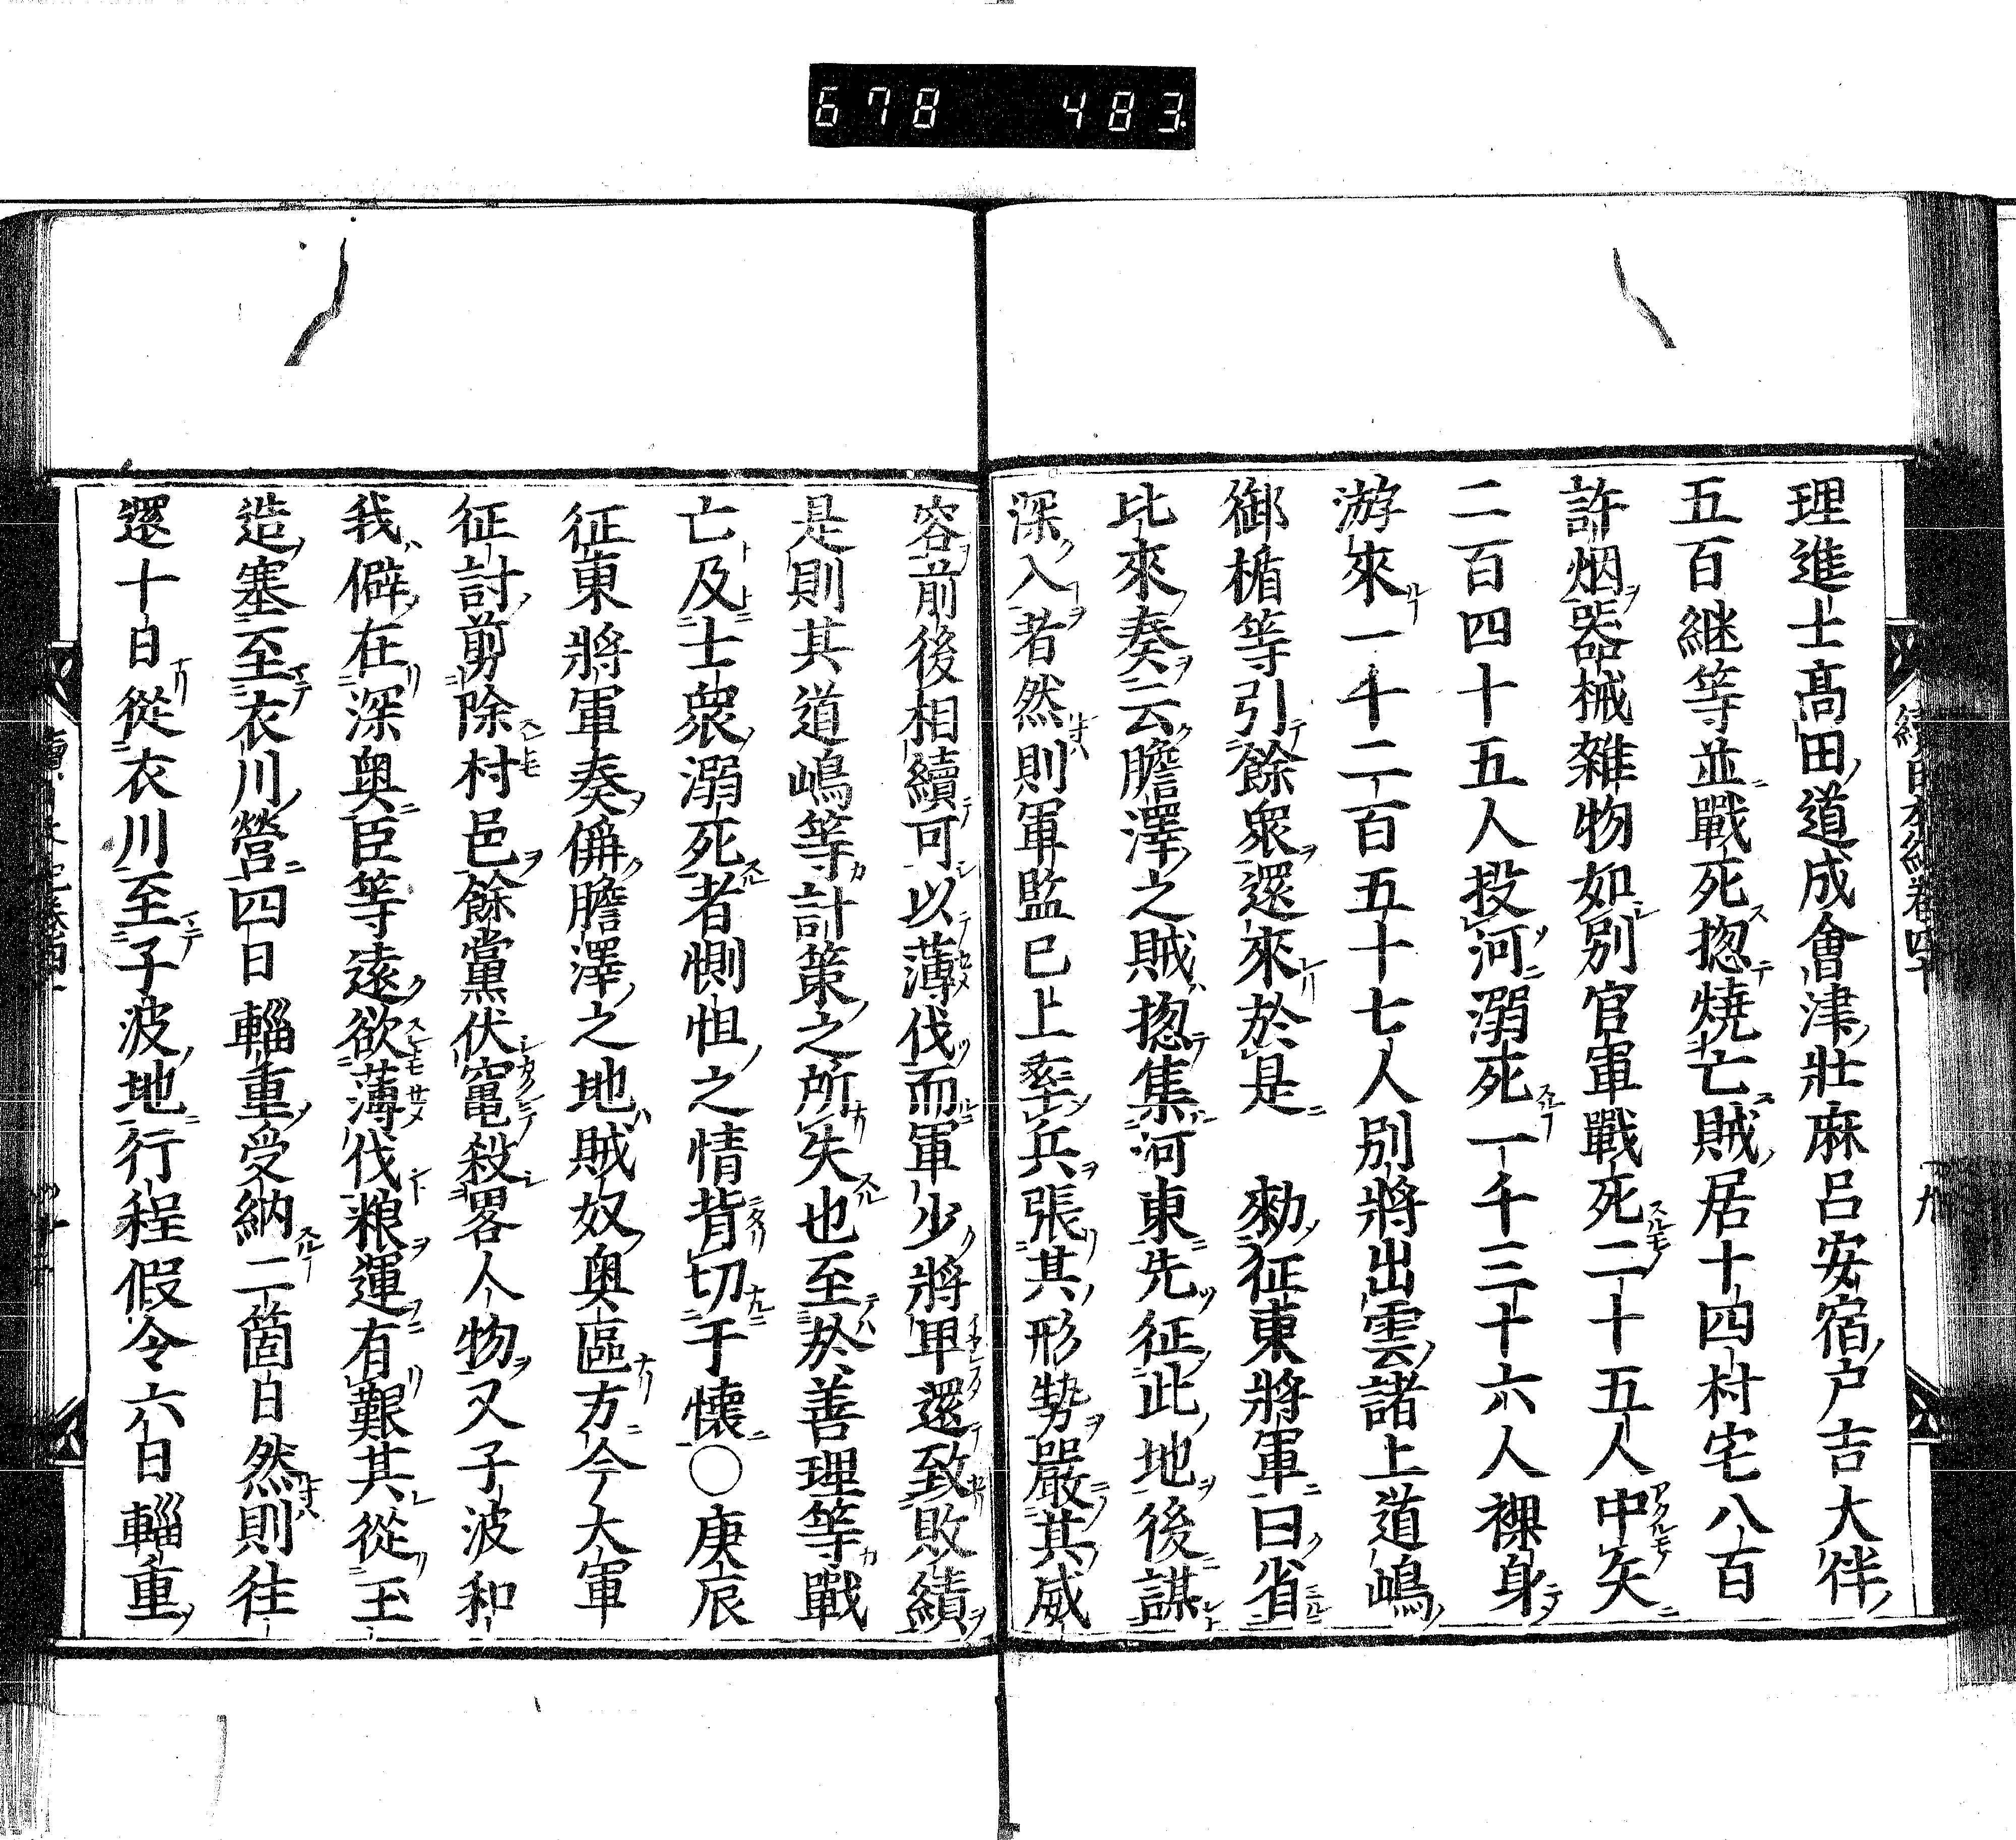 678 483
續日本紀卷四十
理進士髙田道成會津壯麻呂安宿戸吉大伴
五百継等並戰死揔燒亡賊居十四村宅八百
許烟器械雜物如別官軍戰死二十五人中矢
二百四十五人投河溺死一千三十六人裸身
游來一千二百五十七人別將出雲諸上道嶋
御楯等引餘衆還來於是 勑征東將軍曰省
比來奏云膽澤之賊揔集河東先征此地後謀
深入者然則軍監已上率兵張其形勢嚴其威
容前後相續可以薄伐而軍少將卑還致敗績
是則其道嶋等計策之所失也至於善理等戰
亡及士衆溺死者惻怛之情背切于懷○庚辰
征東將軍奏偁膽澤之地賊奴奥區方今大軍
征討剪除村邑餘黨伏竄殺畧人物又子波和
我僻在深奥臣等遠欲薄伐粮運有艱其從玉
造塞至衣川營四日輜重受納二箇日然則往
還十日從衣川至子波地行程假令六日輜重